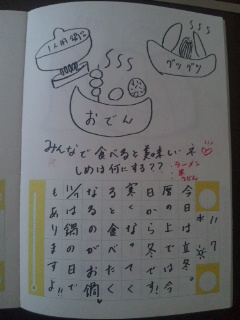 1人用鍋
グツグツ
おでん
みんなで食べると美味しいネ♡
しめは何にする??
ラーメン
米
うどん
7
水
今日は立冬。
暦の上では今
日から冬です!
寒くなってく
ると食べたく
なるのがお鍋
11/7は鍋の日で
もありますよ!!